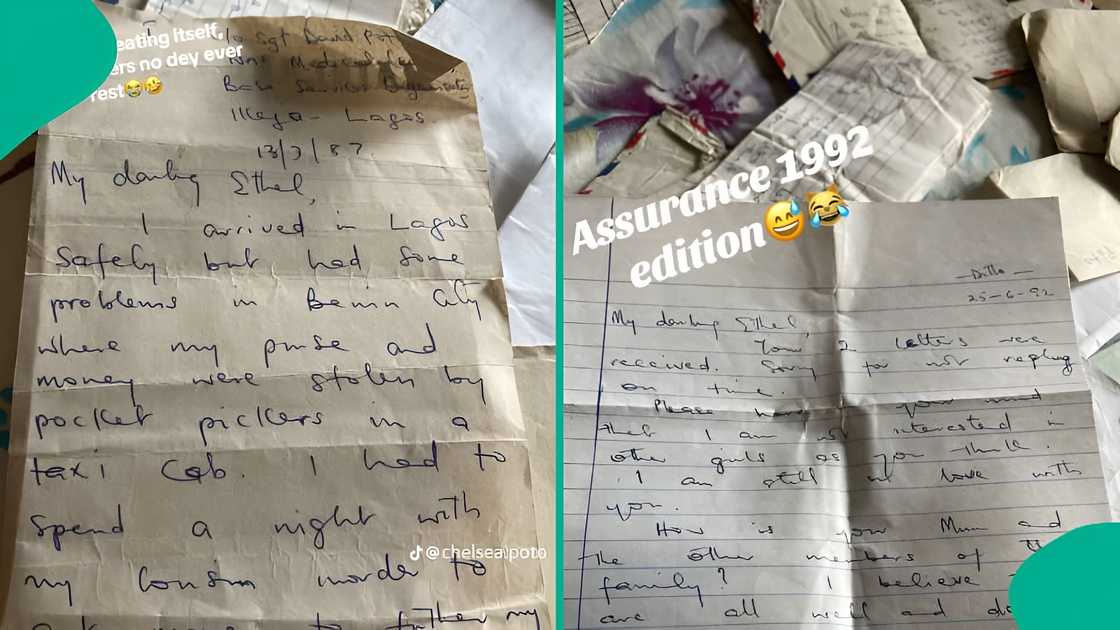 eating itself,
ers no dey ever
rest😭🤣
Sgt David
Base Services
Ikeja - Lagos
13/7/87.
My darling Ethel,
I arrived in Lagos
Safely but had some
problems in Benin City
where my purse and
money were stolen by
pocket pickers in a
taxi cab. I had to
spend a night with
my cousin inorder to
@chelsealpoto
Assurance 1992
edition😅😹
- Ditto -
25-6-92
My darling Ethel,
Your 2 letters were
received. Sorry for not replying
on time.
Please have your mind
that I am not interested in
other girls as you think.
I am still in love with
you.
How is your Mum and
the other members of
family? I believe
are all well and